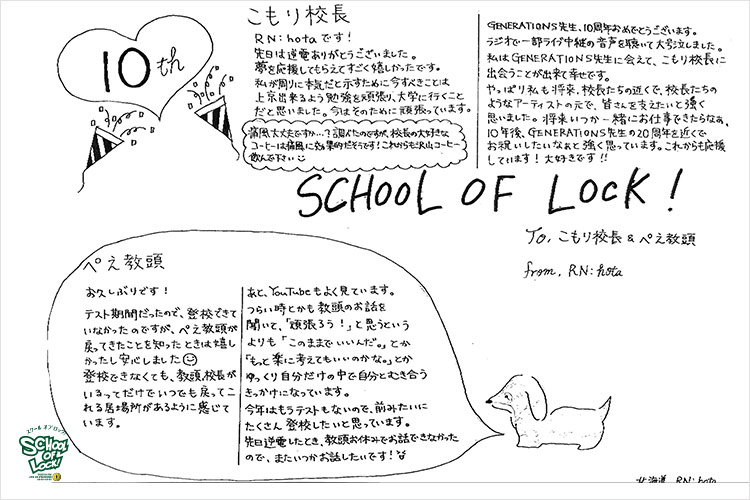 10th
こもり校長
RN:hotaです!
先日は逆電ありがとうございました。
夢を応援してもらえてすごく嬉しかったです。
私が周りに本気だと示すために今すべきことは
上京出来るよう勉強を頑張り、大学に行くこと
だと思いました。今はそのために頑張っています。
痛風大丈夫ですか…?調べたのですが、校長の大好きな
コーヒーは痛風に効果的だそうです!これからも沢山コーヒー
飲んで下さい
GENERATIONS先生、10周年おめでとうございます。
ラジオで一部ライブ中継の音声を聴いて大号泣しました。
私はGENERATIONS先生に会えて、こもり校長に
出会うことが出来て幸せです。
やっぱり私も将来、校長たちの近くで、校長たちの
ようなアーティストの元で、皆さんを支えたいと強く
思いました。将来いつか一緒にお仕事できたらなぁ、
10年後、GENERATIONS先生の20周年を近くで
お祝いしたいなぁと強く思っています。これからも応援
しています!大好きです!!
SCHOOL OF LOCK!
To, こもり校長&ぺえ教頭
from, RN:hota
ぺえ教頭
お久しぶりです!
テスト期間だったので、登校できて
いなかったのですが、ぺえ教頭が
戻ってきたことを知ったときは嬉し
かったし安心しました
登校できなくても、教頭、校長が
いるってだけでいつでも戻ってこ
れる居場所があるように感じて
います。
あと、YouTubeもよく見ています。
つらい時とかも教頭のお話を
聞いて、「頑張ろう!」と思うという
よりも「このままでいいんだ。」とか
「もっと楽に考えてもいいのかな。」とか
ゆっくり自分だけの中で自分とむき合う
きっかけになっています。
今年はもうテストもないので、前みたいに
たくさん登校したいと思っています。
先日逆電したとき、教頭お休みでお話できなかった
ので、またいつかお話したいです!
スクール オブ ロック
SCHOOL OF LOCK!
北海道 RN:hota